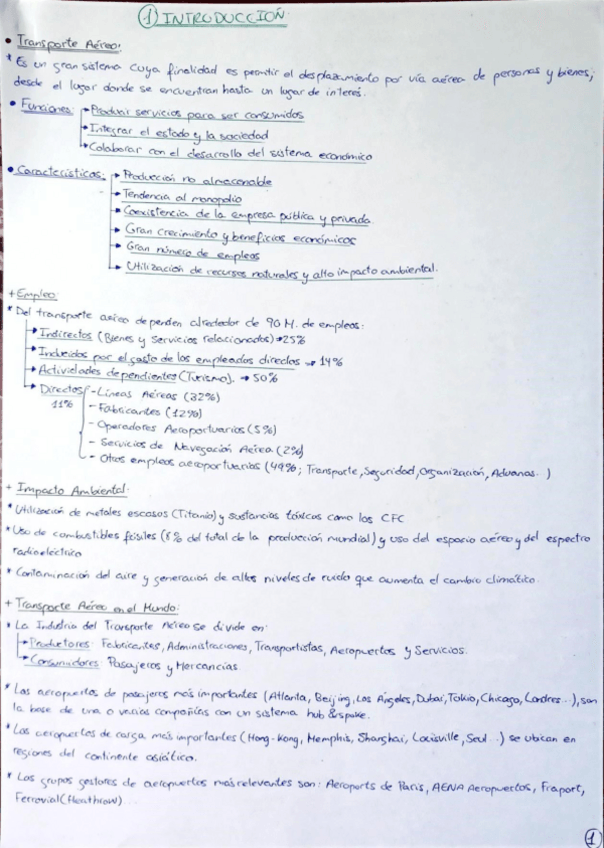 ① INTRODUCCIÓN
• Transporte Aéreo:
* Es un gran sistema cuya finalidad es permitir el desplazamiento por vía aérea de personas y bienes;
desde el lugar donde se encuentran hasta un lugar de interés.
• Funciones: → Producir servicios para ser consumidos
→ Integrar el estado y la sociedad
→ Colaborar con el desarrollo del sistema económico
• Características: → Producción no almacenable
→ Tendencia al monopolio
→ Coexistencia de la empresa pública y privada
→ Gran crecimiento y beneficios económicos
→ Gran número de empleos
→ Utilización de recursos naturales y alto impacto ambiental.
+ Empleo:
* Del transporte aéreo dependen alrededor de 90 M. de empleos:
→ Indirectos (Bienes y Servicios relacionados) → 25%
→ Inducidos por el gasto de los empleados directos → 14%
→ Actividades dependientes (Turismo). → 50%
→ Directos - Líneas Aéreas (32%)
11% - Fabricantes (12%)
- Operadores Aeroportuarios (5%)
- Servicios de Navegación Aérea (2%)
- Otros empleos aeroportuarios (49%; Transporte, Seguridad, Organización, Aduanas...)
+ Impacto Ambiental:
* Utilización de metales escasos (Titanio) y sustancias tóxicas como los CFC
* Uso de combustibles fósiles (8% del total de la producción mundial) y uso del espacio aéreo y del espectro
radioeléctrico
* Contaminación del aire y generación de altos niveles de ruido que aumenta el cambio climático.
+ Transporte Aéreo en el Mundo:
* La Industria del Transporte Aéreo se divide en:
→ Productores: Fabricantes, Administraciones, Transportistas, Aeropuertos y Servicios.
→ Consumidores: Pasajeros y Mercancías
* Los aeropuertos de pasajeros más importantes (Atlanta, Beijing, Los Ángeles, Dubai, Tokio, Chicago, Londres...), son
la base de una o varias compañías con un sistema hub & spoke.
* Los aeropuertos de carga más importantes (Hong-Kong, Memphis, Shanghai, Louisville, Seul...) se ubican en
regiones del continente asiático.
* Los grupos gestores de aeropuertos más relevantes son: Aeroports de Paris, AENA Aeropuertos, Fraport,
Ferrovial (Heathrow)
①